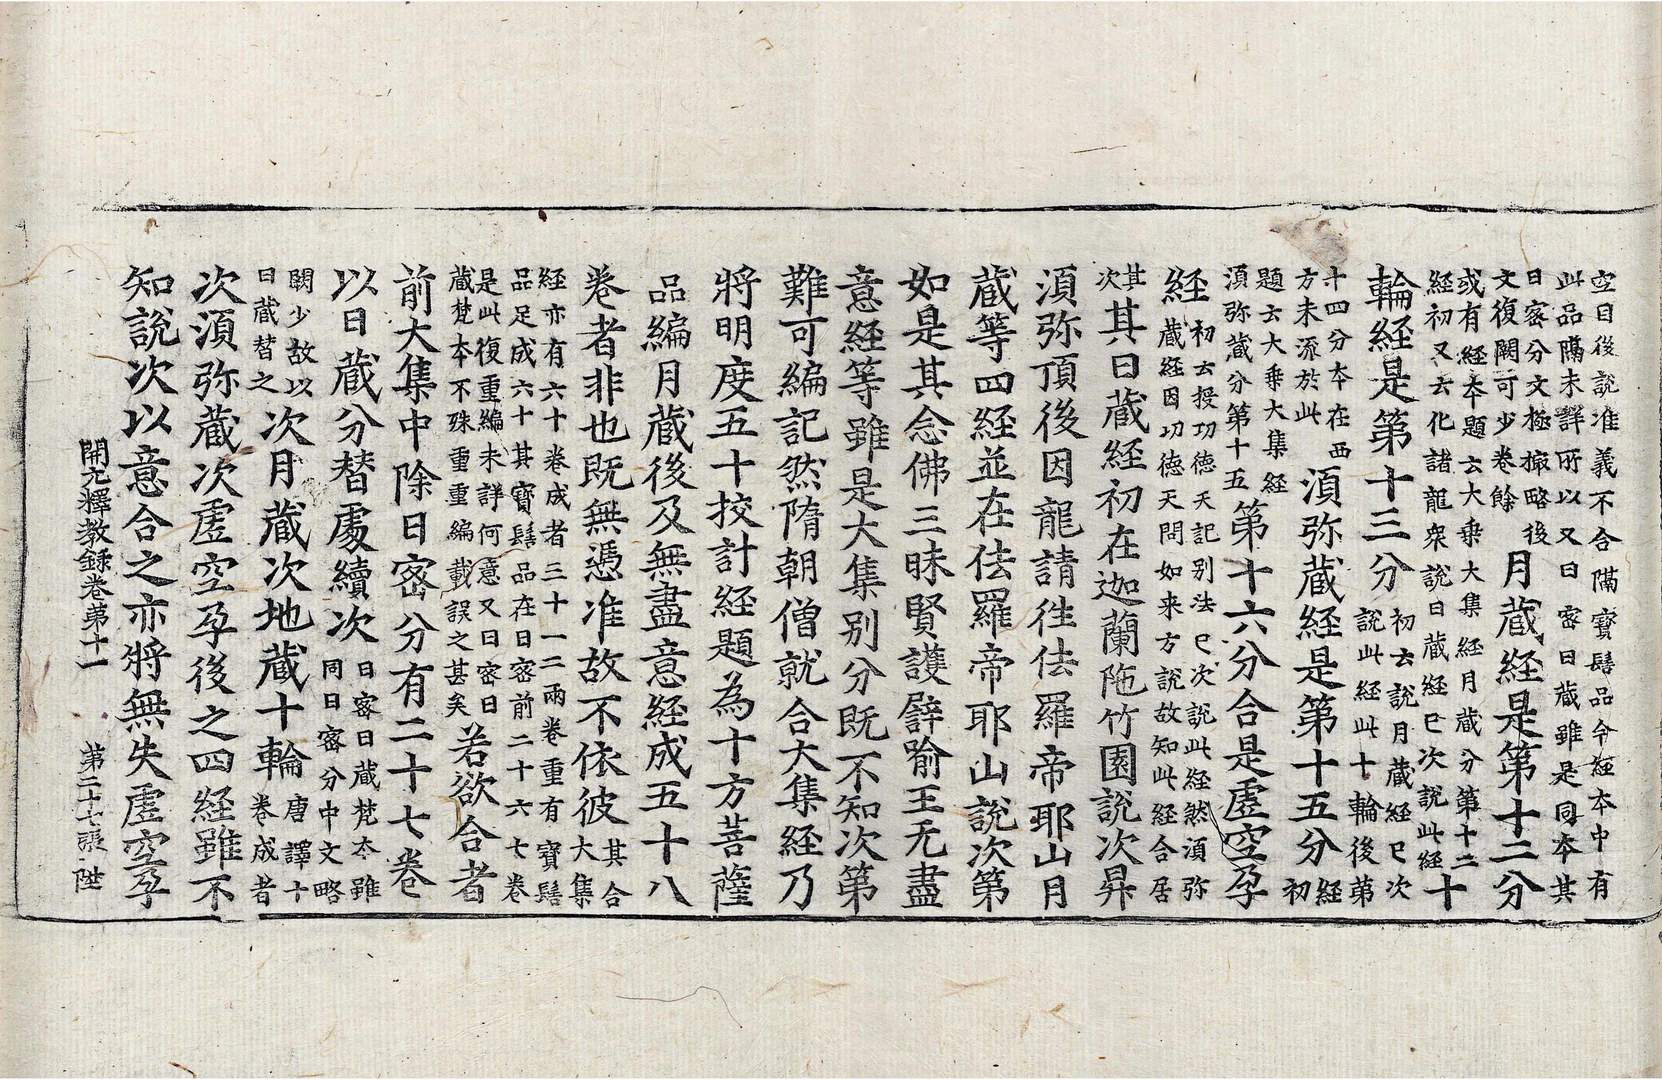 空目後說准義不合隔寶髻品今經本中有
此品隔未詳所以又日密日藏雖是同本其
日密分文極撮略後
文復闕可少卷餘
月藏經是第十二分
或有經本題云大乘大集經月藏分第十二
經初又云化諸龍衆說日藏經已次說此經
十
輪經是第十三分
初云說月藏經已次
說此經此十輪後第
十四分本在西
方未流於此
須弥藏經是第十五分
經
初
題云大乘大集經
須弥藏分第十五
第十六分合是虛空孕
經
初云授功德天記別法已次說此經然須弥
藏經因功德天問如来方說故知此經合居
其
次
其日藏經初在迦蘭陁竹園說次昇
須弥頂後因龍請往佉羅帝耶山月
藏等四經並在佉羅帝耶山說次第
如是其念佛三昧賢護譬喻王无盡
意經等雖是大集別分既不知次第
難可編記然隋朝僧就合大集經乃
將明度五十挍計經題為十方菩薩
品編月藏後及無盡意經成五十八
卷者非也既無憑准故不依彼
其合
大集
經亦有六十卷成者三十一二兩卷重有寶髻
品足成六十其寶髻品在日密前二十六七卷
是此復重編未詳何意又日密日
藏梵本不殊重重編載誤之甚矣
若欲合者
前大集中除日密分有二十七卷
以日藏分替處續次
日密日藏梵本雖
同日密分中文略
闕少故以
日藏替之
次月藏次地藏十輪
唐譯十
卷成者
次須弥藏次虛空孕後之四經雖不
知說次以意合之亦將無失虛空孕
開元釋教錄卷第十一 第二十七張 陞